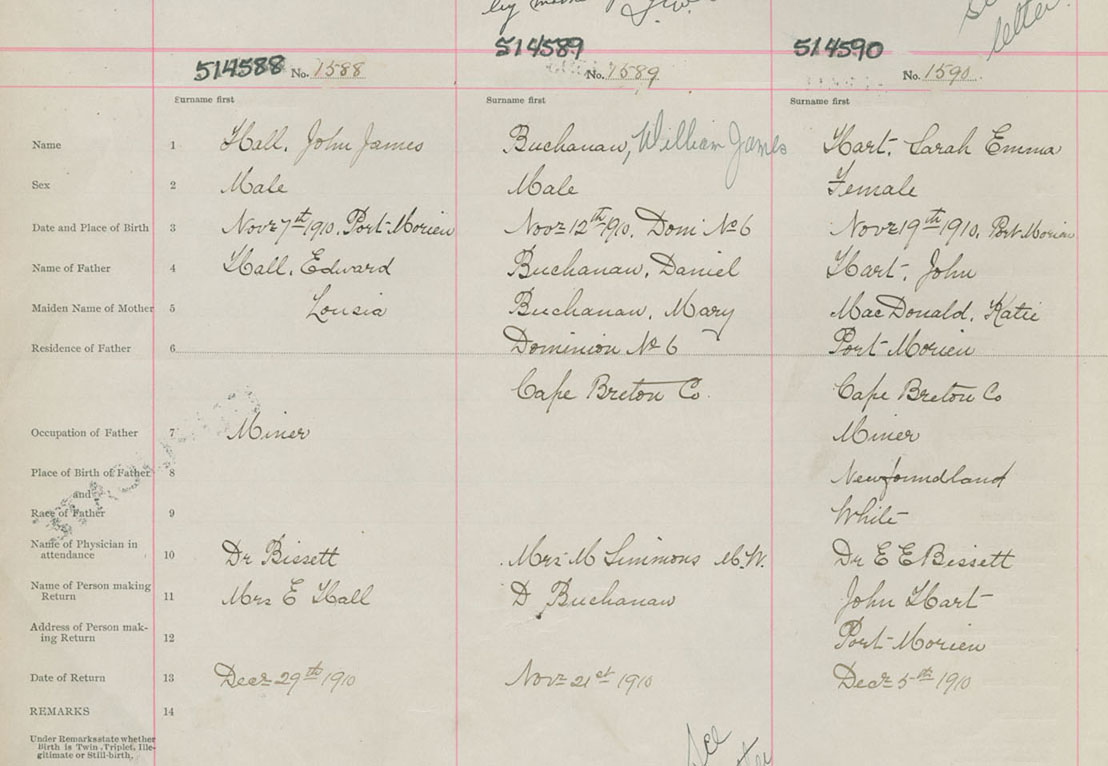 by
letter
514588 No. 1588
514589 No. 1589
514590 No. 1590
Surname first Surname first Surname first
Name 1 Hall, John James Buchanan, William James Hart, Sarah Emma
Sex 2 Male Male Female
Date and Place of Birth 3 Novr 7th 1910, Port Morien Novr 12th 1910, Domi No 6 Novr 19th 1910, Port Morien
Name of Father 4 Hall, Edward Buchanan, Daniel Hart, John
Maiden Name of Mother 5 Lousia Buchanan, Mary MacDonald, Katie
Residence of Father 6 Dominion No 6 Port Morien
Cape Breton Co. Cape Breton Co
Occupation of Father 7 Miner Miner
Place of Birth of Father 8 Newfoundland
and
Race of Father 9 White
Name of Physician in
attendance 10 Dr Bissett Mrs M Simmons M.W. Dr E E Bissett
Name of Person making
Return 11 Mrs E Hall D Buchanan John Hart
Address of Person mak-
ing Return 12 Port Morien
Date of Return 13 Decr 29th 1910 Novr 21st 1910 Decr 5th 1910
REMARKS 14
Under Remarks state whether
Birth is Twin, Triplet, Ille-
gitimate or Still-birth.
See